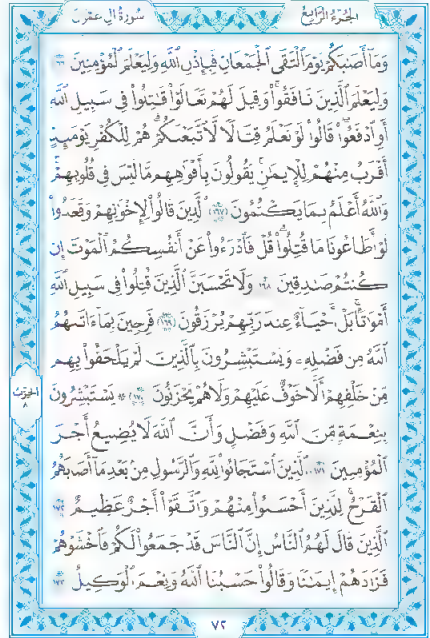 الجزء الرابع
سورة آل عمران
وَمَآ أَصَٰبَكُمْ يَوْمَ ٱلْتَقَى ٱلْجَمْعَانِ فَبِإِذْنِ ٱللَّهِ وَلِيَعْلَمَ ٱلْمُؤْمِنِينَ ١٦٦
وَلِيَعْلَمَ ٱلَّذِينَ نَافَقُوا۟ وَقِيلَ لَهُمْ تَعَالَوْا۟ قَٰتِلُوا۟ فِى سَبِيلِ ٱللَّهِ
أَوِ ٱدْفَعُوا۟ قَالُوا۟ لَوْ نَعْلَمُ قِتَالًا لَّٱتَّبَعْنَٰكُمْ هُمْ لِلْكُفْرِ يَوْمَئِذٍ
أَقْرَبُ مِنْهُمْ لِلْإِيمَٰنِ يَقُولُونَ بِأَفْوَٰهِهِم مَّا لَيْسَ فِى قُلُوبِهِمْ
وَٱللَّهُ أَعْلَمُ بِمَا يَكْتُمُونَ ١٦٧ ٱلَّذِينَ قَالُوا۟ لِإِخْوَٰنِهِمْ وَقَعَدُوا۟
لَوْ أَطَاعُونَا مَا قُتِلُوا۟ قُلْ فَٱدْرَءُوا۟ عَنْ أَنفُسِكُمُ ٱلْمَوْتَ إِن
كُنتُمْ صَٰدِقِينَ ١٦٨ وَلَا تَحْسَبَنَّ ٱلَّذِينَ قُتِلُوا۟ فِى سَبِيلِ ٱللَّهِ
أَمْوَٰتًۢا بَلْ أَحْيَآءٌ عِندَ رَبِّهِمْ يُرْزَقُونَ ١٦٩ فَرِحِينَ بِمَآ ءَاتَىٰهُمُ
ٱللَّهُ مِن فَضْلِهِۦ وَيَسْتَبْشِرُونَ بِٱلَّذِينَ لَمْ يَلْحَقُوا۟ بِهِم
مِّنْ خَلْفِهِمْ أَلَّا خَوْفٌ عَلَيْهِمْ وَلَا هُمْ يَحْزَنُونَ ١٧٠ ۞ يَسْتَبْشِرُونَ
بِنِعْمَةٍ مِّنَ ٱللَّهِ وَفَضْلٍ وَأَنَّ ٱللَّهَ لَا يُضِيعُ أَجْرَ
ٱلْمُؤْمِنِينَ ١٧١ ٱلَّذِينَ ٱسْتَجَابُوا۟ لِلَّهِ وَٱلرَّسُولِ مِنۢ بَعْدِ مَآ أَصَابَهُمُ
ٱلْقَرْحُ لِلَّذِينَ أَحْسَنُوا۟ مِنْهُمْ وَٱتَّقَوْا۟ أَجْرٌ عَظِيمٌ ١٧٢
ٱلَّذِينَ قَالَ لَهُمُ ٱلنَّاسُ إِنَّ ٱلنَّاسَ قَدْ جَمَعُوا۟ لَكُمْ فَٱخْشَوْهُمْ
فَزَادَهُمْ إِيمَٰنًا وَقَالُوا۟ حَسْبُنَا ٱللَّهُ وَنِعْمَ ٱلْوَكِيلُ ١٧٣
الحزب
٨
٧٢